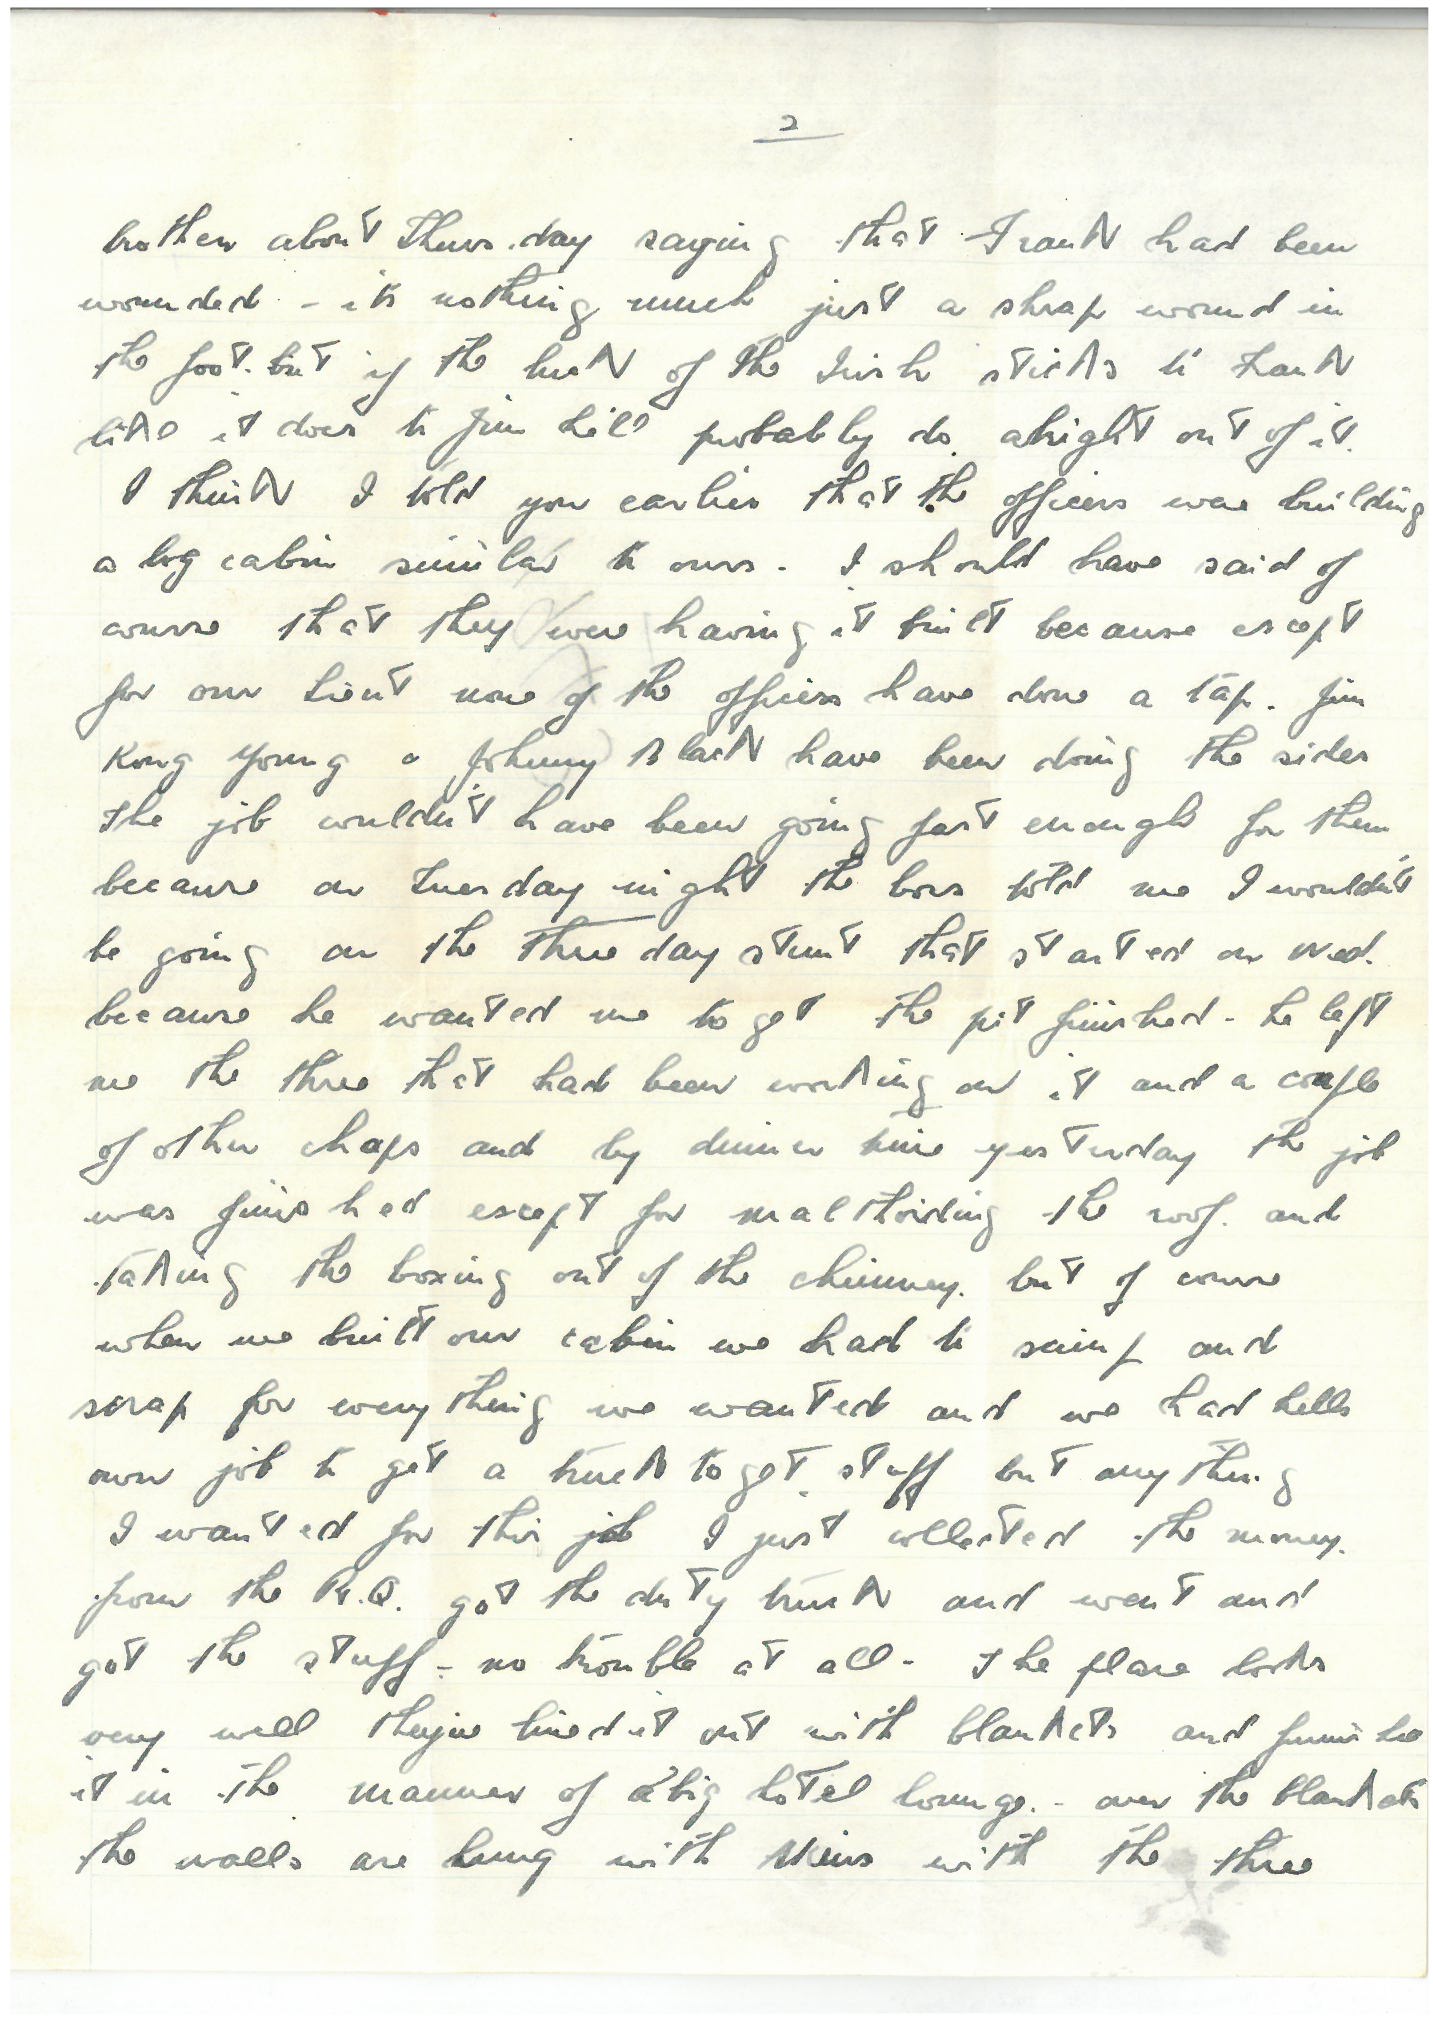 2
brother about Thursday saying that Frank had been
wounded - its nothing much just a shrap wound in
the foot. but if the luck of the Irish sticks to Frank
like it does to Jim he'll probably do alright out of it.
I think I told you earlier that the officers were building
a log cabin similar to ours. I should have said of
course that they were having it built because except
for our Lieut none of the officers have done a tap. Jim
Kong Young & Johnny Black have been doing the sides
the job wouldn't have been going fast enough for them
because on Tuesday night the boss told me I wouldn't
be going on the three day stunt that started on Wed.
because he wanted me to get the pit finished - he left
me the three that had been working on it and a couple
of other chaps and by dinner time yesterday the job
was finished except for malthoiding the roof. and
taking the boxing out of the chimney. but of course
when we built our cabin we had to scimp and
scrap for everything we wanted and we had hells
own job to get a truck to get stuff but anything
I wanted for this job I just collected the money.
from the R.Q. got the duty truck and went and
got the stuff - no trouble at all - The place looks
very well they've lined it out with blankets and
it in the manner of a big hotel lounge. - over the blankets
the walls are hung with skins with the three